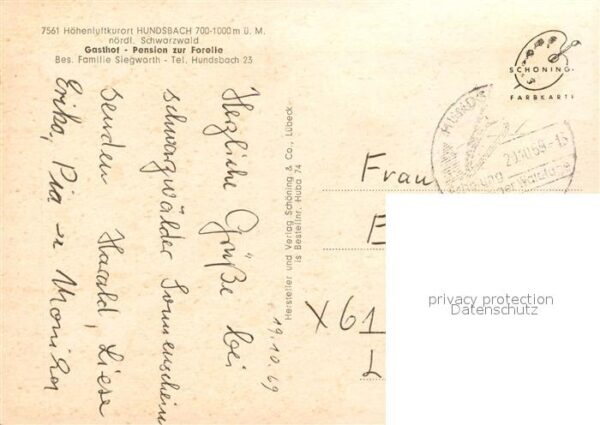 7561 Höhenluftkurort HUNDSBACH 700-1000 m ü. M.
nördl. Schwarzwald
Gasthof - Pension zur Forelle
Bes. Familie Siegwarth - Tel. Hundsbach 23
Herzliche Grüße bei
schwarzwälder Sonnenschein
senden Harald, Liese
Erika, Pia u Monika
19.10.69
Hersteller und Verlag Schöning & Co., Lübeck
is Bestellnr. Huba 74
SCHÖNING
FARBKARTE
Frau
E
X 61
privacy protection
Datenschutz